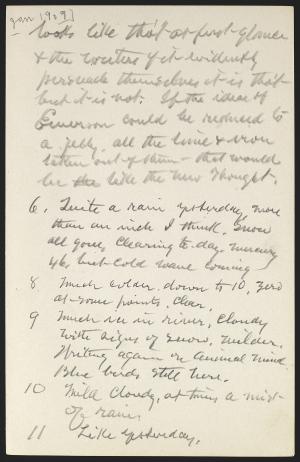 Jan 1909]
looks like that at first glance
& the writers of it evidently
persuade themselves it is that
but it is not. If the ideas of
Emerson could be reduced to
a jelly, all the lime & iron
taken out of them - that would
be the like the New Thought.
6. Quite a rain yesterday, more
than an inch I think. Snow
all gone, Clearing to-day. mercury
46, but cold wave coming
8 Much colder, down to 10, zero
at some points, clear.
9 Much ice in river, Cloudy
with signs of snow, milder.
Writing again on Animal mind.
Blue birds still here.
10 Mild Cloudy, at times a mist
of rain.
11 Like yesterday.